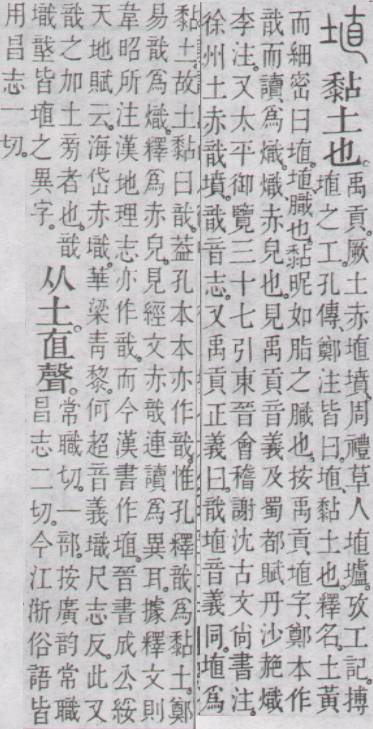 埴
黏土也。
禹貢。厥土赤埴墳。周禮草人埴壚。攷工記。搏
埴之工。孔傳、鄭注皆曰。埴、黏土也。釋名。土黃
而細密曰埴。埴、膱也。黏昵如脂之膱也。按禹貢埴字、鄭本作
戠而讀爲熾。熾、赤皃也。見禹貢音義及蜀都賦丹沙赩熾
李注。又太平御覽三十七引東晉會稽謝沈古文尙書注。
徐州土赤戠墳。戠音志。又禹貢正義曰。戠埴音義同。埴爲
黏土。故土黏曰戠。葢孔本本亦作戠。惟孔釋戠爲黏土。鄭
易戠爲熾。釋爲赤皃。見經文赤戠連讀爲異耳。據釋文則
韋昭所注漢地理志亦作戠。而今漢書作埴。晉書成公綏
天地賦云。海岱赤。華梁靑黎。何超音義尺志反。此又
戠之加土旁者也。戠
皆埴之異字。
从土。直聲。
常職切。一部。按廣韵常職
昌志二切。今江浙俗語皆
用昌志一切。